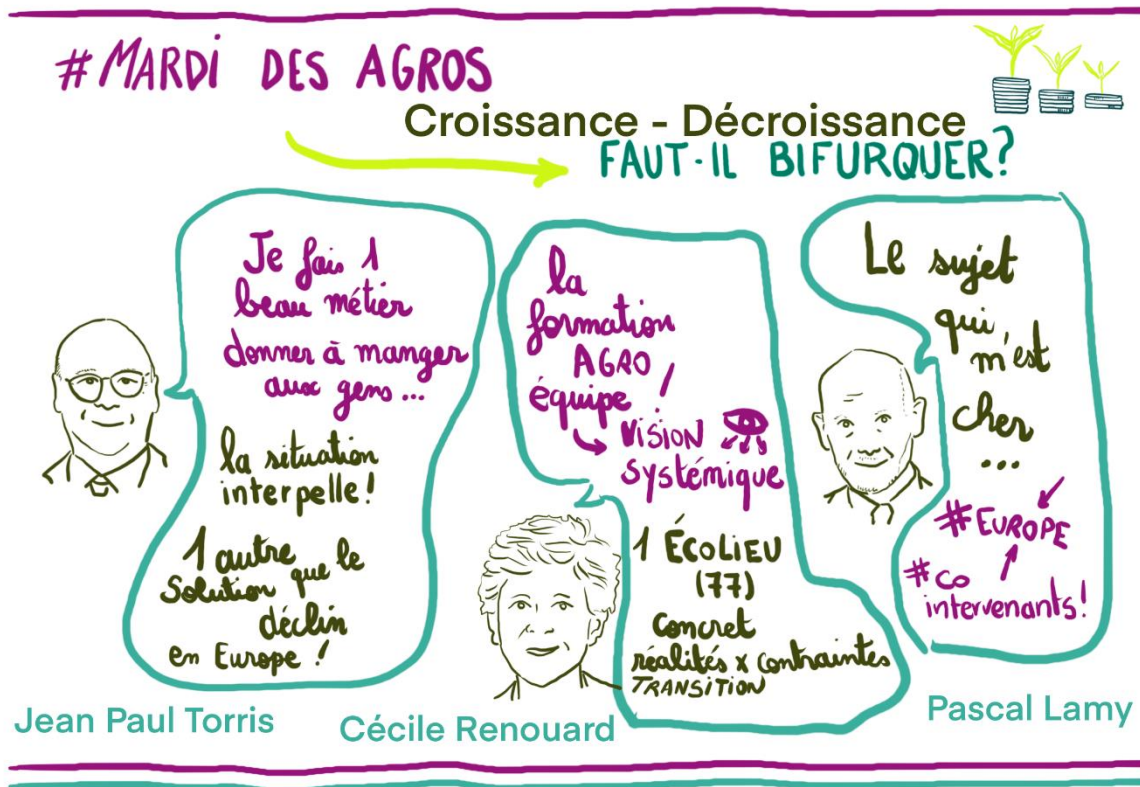 #MARDI DES AGROS
Croissance - Décroissance
FAUT-IL BIFURQUER?
Je fais 1
beau métier
donner à manger
aux gens...
la situation
interpelle!
1 autre
solution que le
déclin
en Europe!
Jean Paul Torris
la
formation
AGRO
équipe!
VISION
systémique
1 ÉCOLIEU
(77)
Concret
réalités x contraintes
TRANSITION
Cécile Renouard
Le sujet
qui
m'est
cher
...
#EUROPE
#CO
intervenants!
Pascal Lamy